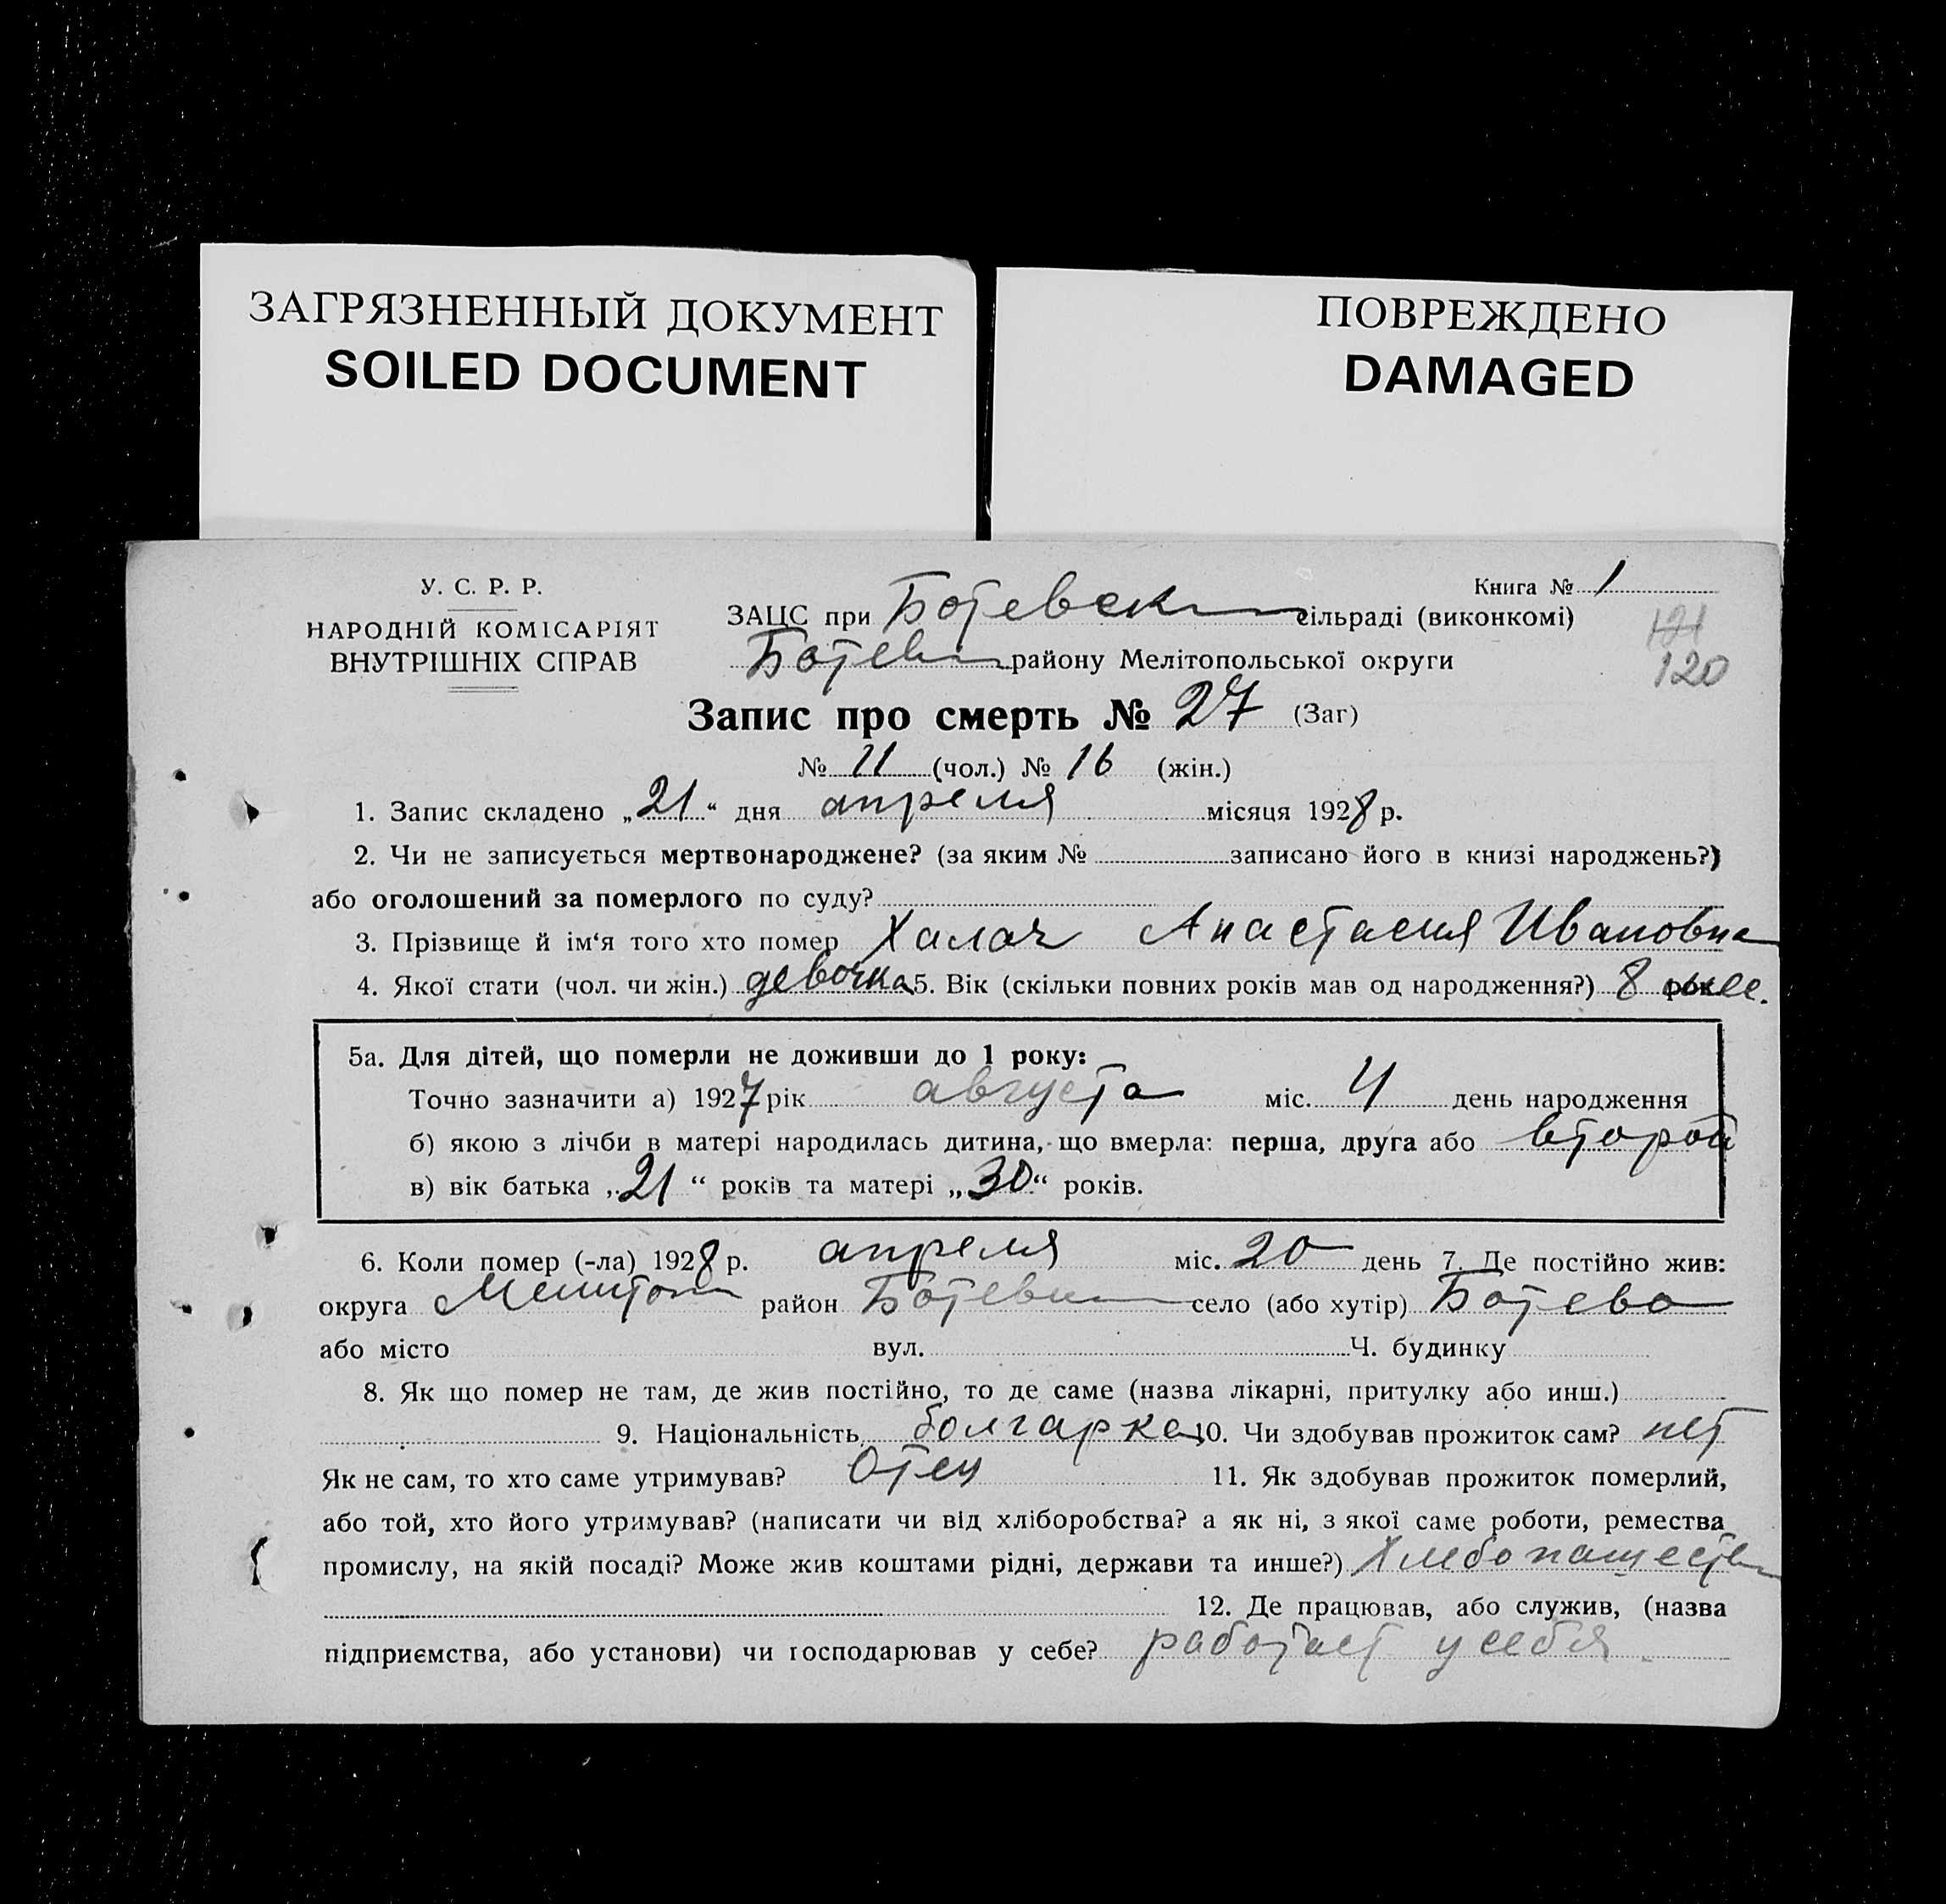 ЗАГРЯЗНЕННЫЙ ДОКУМЕНТ
SOILED DOCUMENT
ПОВРЕЖДЕНО
DAMAGED
У. С. Р. Р.
НАРОДНІЙ КОМІСАРІЯТ
ВНУТРІШНІХ СПРАВ
Книга № 1
ЗАЦС при Ботевск сільраді (виконкомі)
121
Ботевк району Мелітопольської округи
120
Запис про смерть № 27 (Заг)
№ 11 (чол.) № 16 (жін.)
1. Запис складено „21“ дня апреля місяця 1928 р.
2. Чи не записується мертвонароджене? (за яким № записано його в книзі народжень?)
або оголошений за померлого по суду?
3. Прізвище й ім‘я того хто помер Халач Анастасия Ивановна
4. Якої стати (чол. чи жін.) девочка 5. Вік (скільки повних років мав од народження?) 8 мес.
5а. Для дітей, що померли не доживши до 1 року:
Точно зазначити а) 1927 рік августа міс. 4 день народження
б) якою з лічби в матері народилась дитина, що вмерла: перша, друга або второй
в) вік батька „21“ років та матері „30“ років.
6. Коли помер (-ла) 1928 р. апреля міс. 20 день 7. Де постійно жив:
округа Мелитоп район Ботевк село (або хутір) Ботево
або місто вул. Ч. будинку
8. Як що помер не там, де жив постійно, то де саме (назва лікарні, притулку або инш.)
9. Національність болгарка 10. Чи здобував прожиток сам? нет
Як не сам, то хто саме утримував? Отец 11. Як здобував прожиток померлий,
або той, хто його утримував? (написати чи від хліборобства? а як ні, з якої саме роботи, ремества
промислу, на якій посаді? Може жив коштами рідні, держави та инше?) Хлебопашеств
12. Де працював, або служив, (назва
підприємства, або установи) чи господарював у себе? работает у себя